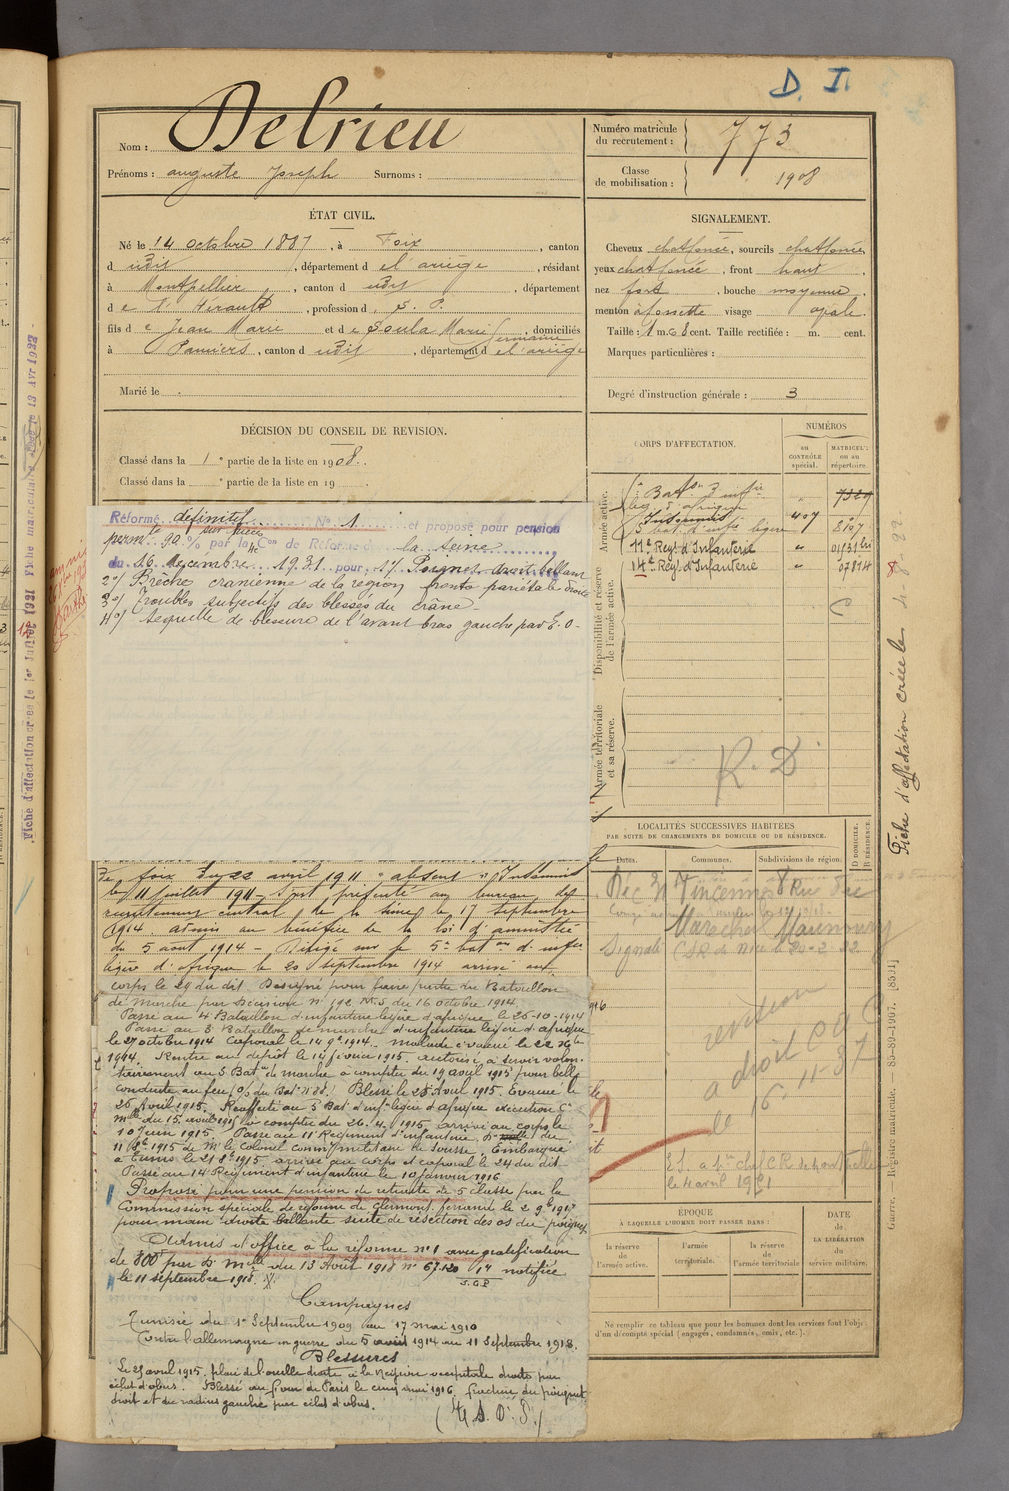 D. I.
Nom : Delrieu
Prénoms : auguste Joseph Surnoms :
Numéro matricule du recrutement : 773
Classe de mobilisation : 1908
ÉTAT CIVIL.
Né le 14 octobre 1887, à Foix, canton
d udit, département d el ariège, résidant
à Montpellier, canton d udit, département
d e l'Hérault, profession d S. P.
fils d e Jean Marie et d e Soula Marie Germaine, domiciliés
à Pamiers, canton d udit, département d el'ariège
Marié le
SIGNALEMENT.
Cheveux chat foncé, sourcils chat foncés,
yeux chat foncé, front haut,
nez fort, bouche moyenne,
menton à fossette visage ovale.
Taille : 1 m. 68 cent. Taille rectifiée : m. cent.
Marques particulières :
Degré d'instruction générale : 3
DÉCISION DU CONSEIL DE REVISION.
Classé dans la 1e partie de la liste en 1908.
Classé dans la e partie de la liste en 19
Réformé définitif N° 1 et proposé pour pension
permte 90 % par la Con de Réforme de la Seine
du 16 Décembre 1931 pour 1°/ Poignet droit ballant
2°/ Brèche cranienne de la région fronto pariétale droite
3°/ Troubles subjectifs des blessés du crâne -
4°/ Sequelle de blessure de l'avant bras gauche par E.O-
CORPS D'AFFECTATION.
NUMÉROS
au CONTRÔLE spécial.
MATRICULE ou au répertoire.
Armée active.
Disponibilité et réserve de l'armée active.
Armée territoriale et sa réserve.
Insoumis 407
5e bat. d'infie légère 8107
11e Regt d'Infanterie " 01131 bis
14e Reg. d'Infanterie " 07814
R. D
LOCALITÉS SUCCESSIVES HABITÉES
PAR SUITE DE CHANGEMENTS DE DOMICILE OU DE RÉSIDENCE.
Dates. Communes. Subdivisions de région.
D DOMICILE. R RÉSIDENCE.
Vincennes 8 Rue du
Maréchal Maunoury
revision
a droit C
le 16-11-37
de foix du 22 avril 1911 "absent" Insoumis
le 11 juillet 1911 - S'est présenté au bureau de
recrutement central de la Seine le 17 septembre
1914. admis au bénéfice de la loi d'amnistie
du 5 aout 1914 - Dirigé sur le 5e bat on d'infie
légère d'afrique le 20 septembre 1914 arrivé au
corps le 29 du dit. Designé pour faire partie du Bataillon
de marche par décision n° 192 M.5 du 16 octobre 1914.
Passé au 4 Bataillon d'infanterie légère d'afrique le 26-10-1914
Passé au 3 Bataillon de marche d'infanterie légère d'afrique
le 27 octobre 1914 Caporal le 14 9bre 1914. malade évacué le 22 Xbre
1914. Rentré au dépôt le 14 février 1915. autorisé à servir volon-
tairement au 5 Bat. de marche à compter du 19 avril 1915 pour belle
conduite au feu (o/ du Bat. N° 88). Blessé le 25 Avril 1915. Evacué le
26 Avril 1915. Réaffecté au 5 Bat d'inf légère d'afrique exécution C.
Mlle du 15 avril 1915 à compter du 26.4.1915, arrivé au corps le
10 Juin 1915. Passé au 11 Régiment d'infanterie, Don du
11 8bre 1915 de Mr le Colonel commt militaire de Sousse. Embarqué
à Tunis le 21 8bre 1915. arrivé au corps et caporal le 24 du dit.
Passé au 14 Régiment d'infanterie le 10 janvier 1916
Proposé pour une pension de retraite de 5 classe par la
Commission spéciale de réforme de Clermont ferrand le 2 9bre 1917
pour main droite ballante suite de résection des os du poignet.
Admis d'office à la réforme n° 1 avec gratification
de 800f par Dn mlle du 13 Août 1918 n° 67.120 notifiée
le 11 septembre 1918.
Campagnes
Tunisie du 1er Septembre 1909 au 17 mai 1910
Contre l'allemagne en guerre du 5 août 1914 au 11 Septembre 1918.
Blessures
Le 25 avril 1915, plaie de l'oreille droite à la région occipitale droite par
éclat d'obus. Blessé au Four de Paris le cinq mai 1916, fracture du poignet
droit et du radius gauche par éclat d'obus.
ÉPOQUE
À LAQUELLE L'HOMME DOIT PASSER DANS :
la réserve de l'armée active.
l'armée territoriale.
la réserve de l'armée territoriale
DATE de LA LIBÉRATION du service militaire.
Ne remplir ce tableau que pour les hommes dont les services font l'objet
d'un décompte spécial (engagés, condamnés, omis, etc.).
Fiche d'affectation créée le
Guerre. — Registre matricule. — 85-89-1907. [8531]
Fiche d'affectation créée le 1er Juillet 1921